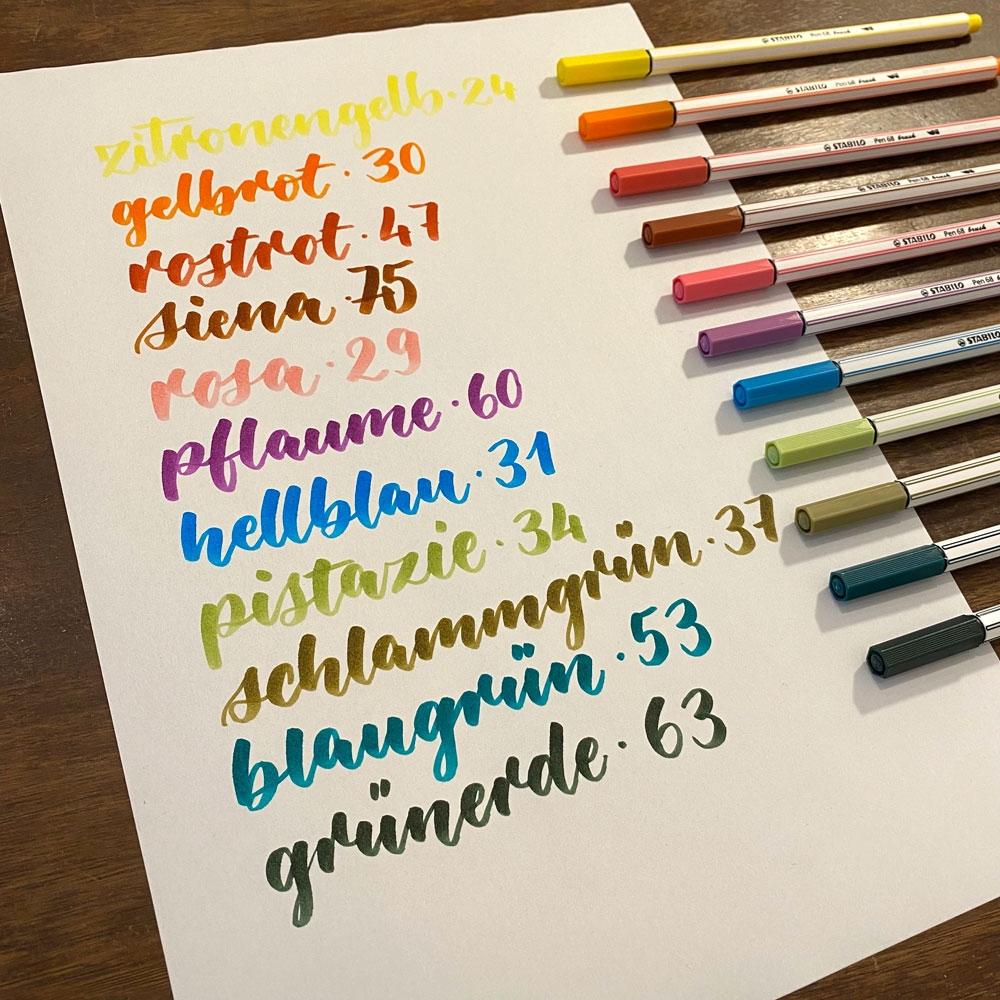 zitronengelb · 24
gelbrot · 30
rostrot · 47
siena · 75
rosa · 29
pflaume · 60
hellblau · 31
pistazie · 34
schlammgrün · 37
blaugrün · 53
grünerde · 63
STABILO Pen 68 brush
STABILO Pen 68 brush
STABILO Pen 68 brush
STABILO Pen 68 brush
STABILO Pen 68 brush
STABILO Pen 68
STABILO